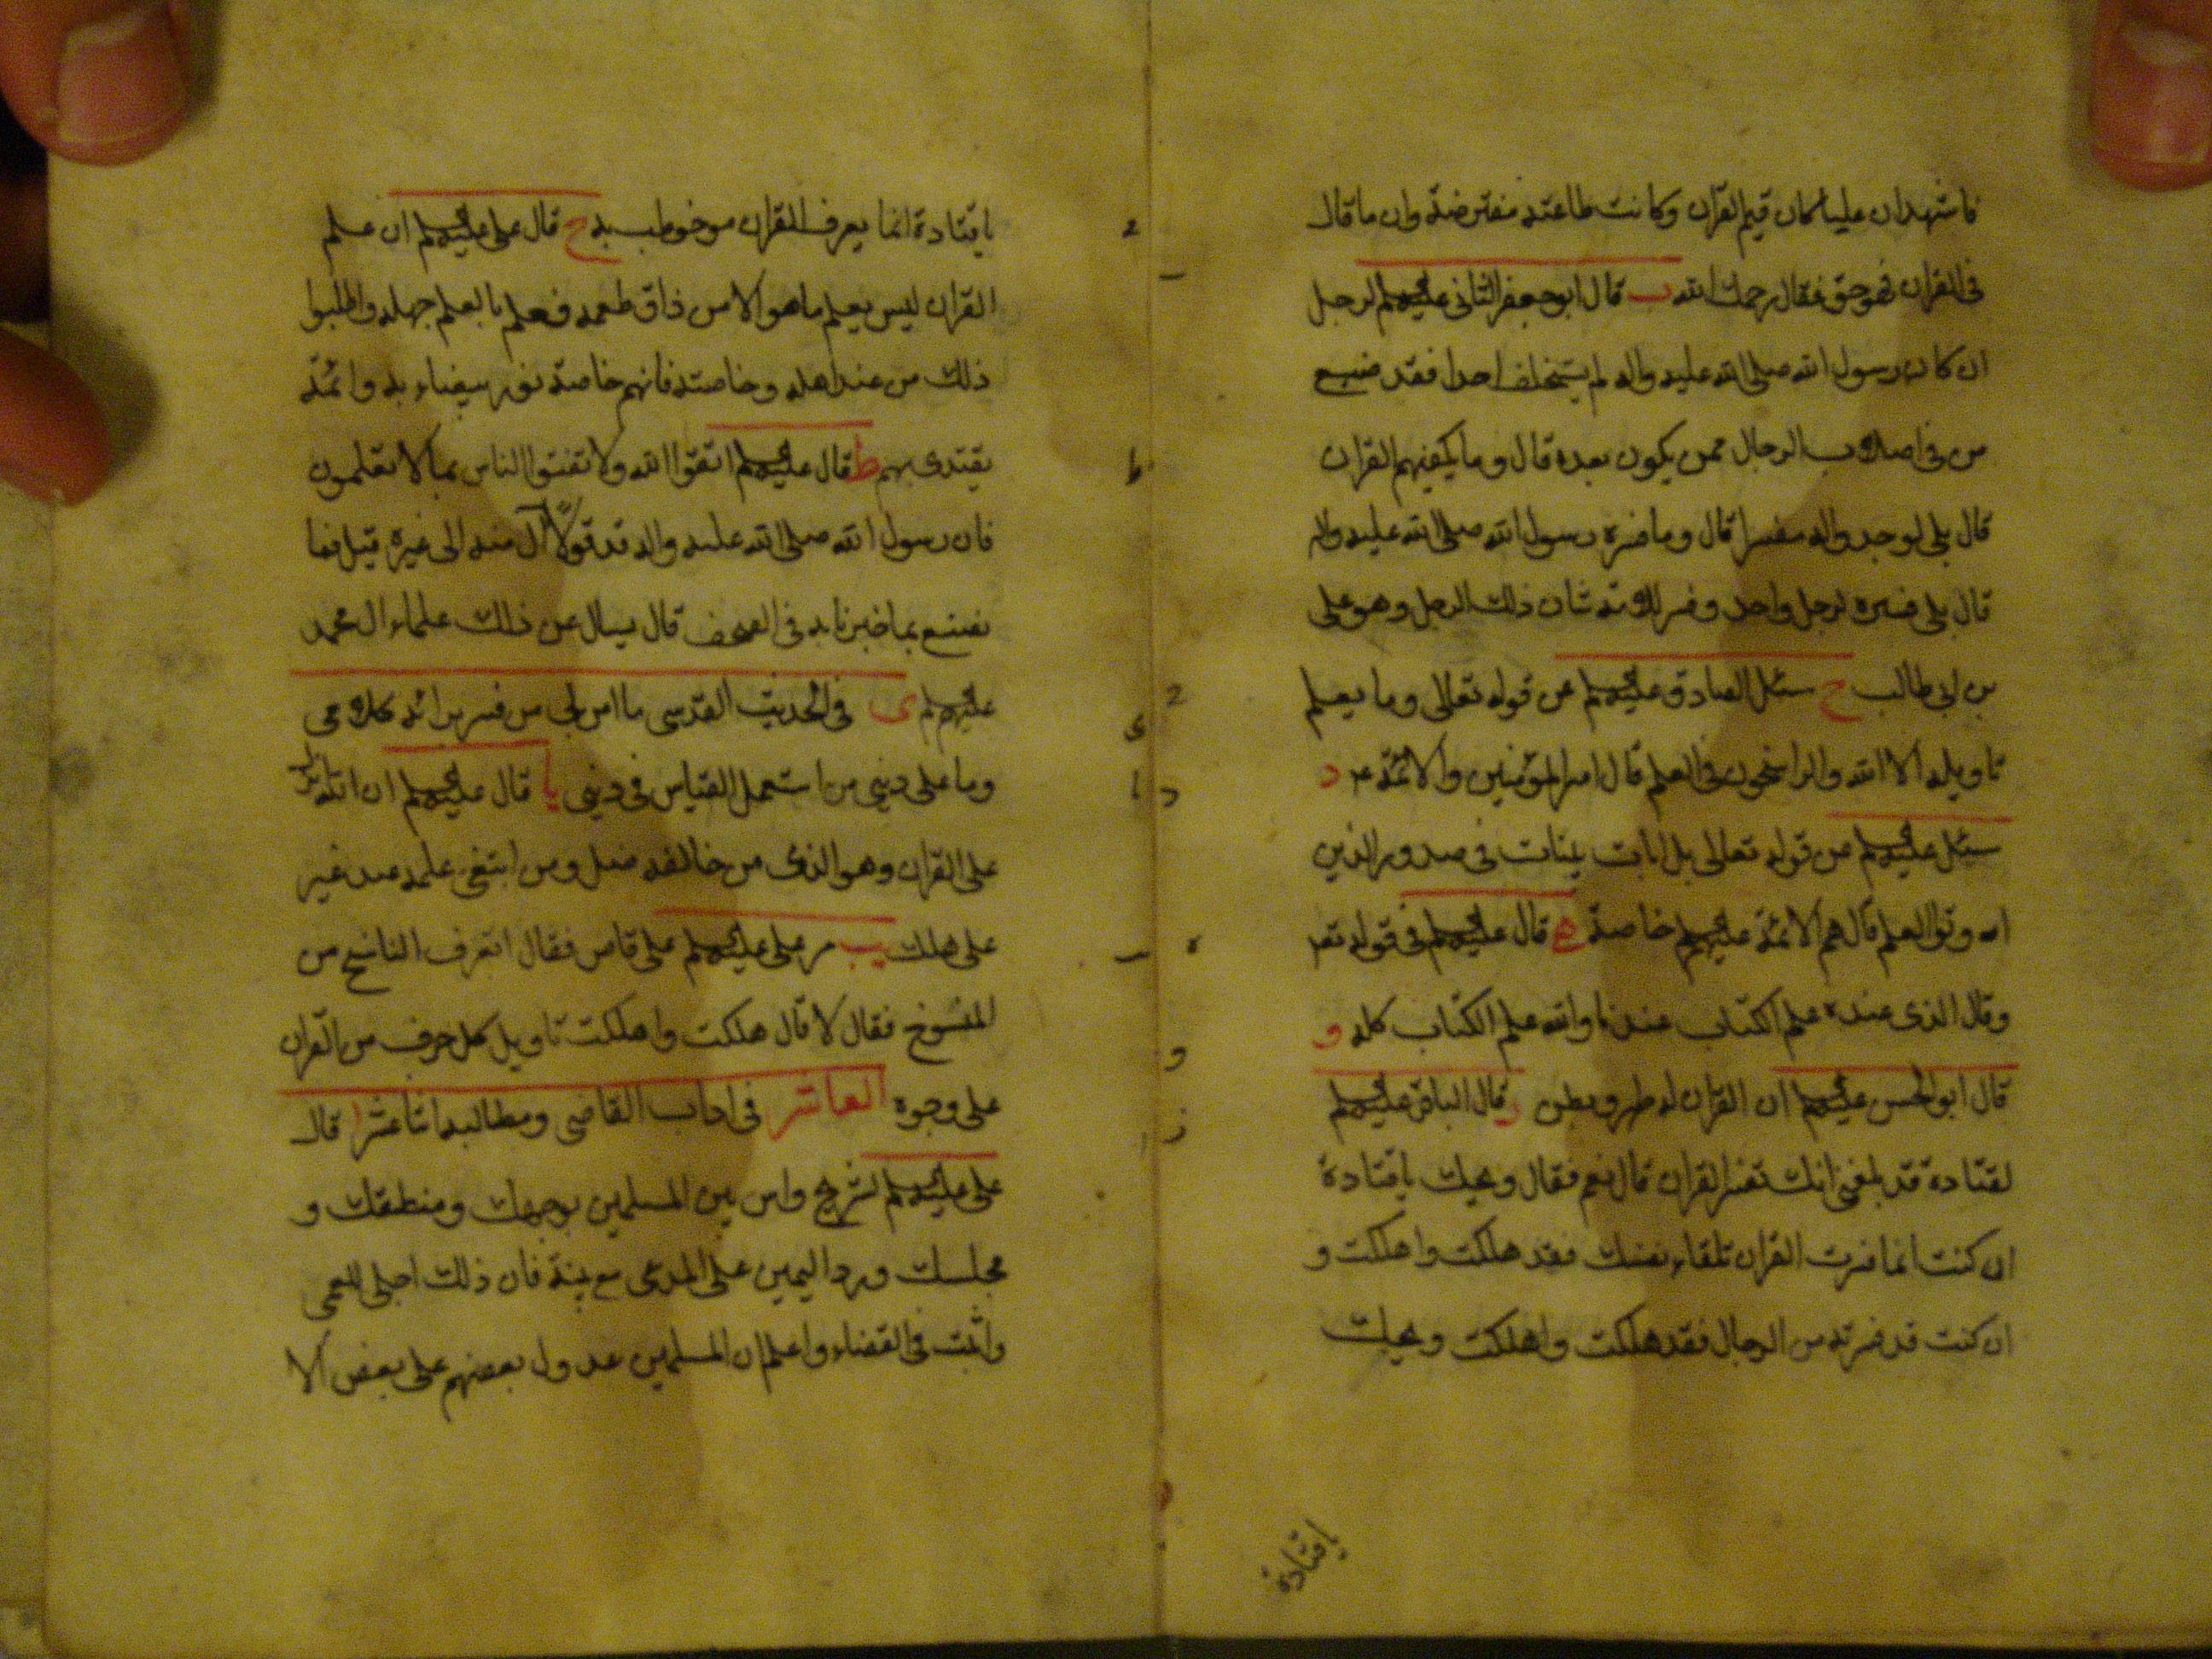 فاشهد ان عليا كان قيم القرآن وكانت طاعته مفترضة وان ما قال
في القران فهو حق فقال رحمك الله ب قال ابو جعفر الثاني عليه‌السلم لرجل
ان كان رسول الله صلى الله عليه واله لم يستخلف احدا فقد ضيع
من في اصلاب الرجال ممن يكون بعده قال وما يكفيهم القران
قال بلى لو جدوا له مفسرا قال وما فسره رسول الله صلى الله عليه واله
قال بلى فسره لرجل واحد وفسر للامة شان ذلك الرجل وهو على
بن ابى طالب ج سئل الصادق عليه‌السلم عن قوله تعالى وما يعلم
تاويله الا الله والراسخون فى العلم قال امير المؤمنين والائمة ع د
سئل عليه‌السلم عن قوله تعالى بل ايات بينات فى صدور الذين
اوتوا العلم قال هم الائمة عليهم السلم خاصة ه قال عليه‌السلم فى قوله تعه
وقال الذى عنده علم الكتاب عندنا والله علم الكتاب كله و
قال ابو الحسن عليه‌السلم ان القران له ظهر وبطن ز قال الباقر عليه‌السلم
لقتادة قد بلغني انك تفسر القران قال نعم فقال ويحك يا قتادة
ان كنت انما فسرت القران تلقاء نفسك فقد هلكت واهلكت و
ان كنت قد فسرته من الرجال فقد هلكت واهلكت ويحك
يا قتادة
يا قتادة انما يعرف القران من خوطب به ح قال على عليه‌السلم ان علم
القران ليس يعلم ما هو الا من ذاق طعمه فعلم بالعلم جهله واطلبوا
ذلك من عند اهله وخاصته فانهم خاصة نور يستضاء به وائمة
يقتدى بهم ط قال عليه‌السلم اتقوا الله ولا تفتوا الناس بما لا تعلمون
فان رسول الله صلى الله عليه واله قد قال قولا آل منه الى غيره قيل فما
نصنع بما خبرنا به فى الصحف قال يسال عن ذلك علماء ال محمد
عليهم السلم ى فى الحديث القدسى ما امن بى من فسر برائه كلامى
وما على دينى من استعمل القياس فى دينى يا قال عليه‌السلم ان الله انزل
على القران وهو الذى من خالفه ضل ومن ابتغى علمه عند غير
على هلك يب مر على عليه‌السلم على قاض فقال اتعرف الناسخ من
المنسوخ فقال لا قال هلكت واهلكت تاويل كل حرف من القران
على وجوه العاشر فى اداب القاضى ومطالبه اثنا عشر ا قال
على عليه‌السلم لشريح واس بين المسلمين بوجهك ومنطقك و
مجلسك ورد اليمين على المدعى مع بينة فان ذلك اجلى للعمى
واثبت فى القضاء واعلم ان المسلمين عدول بعضهم على بعض الا